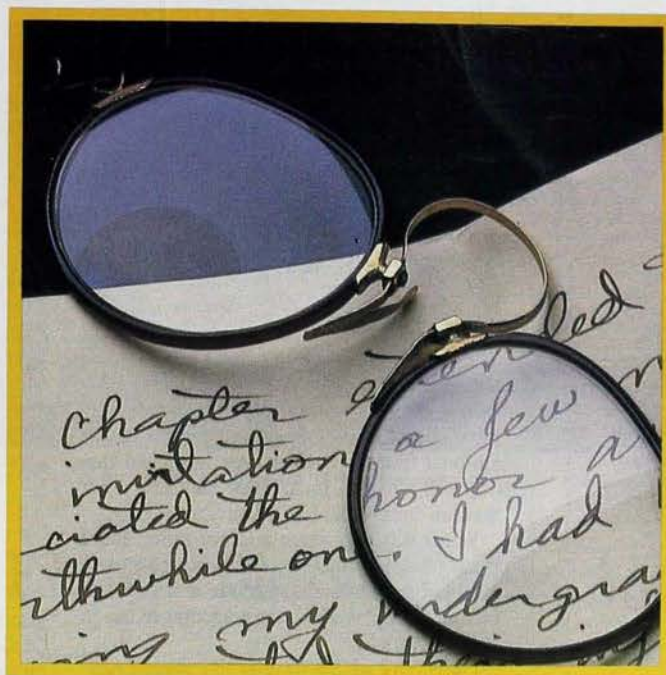 chapter extended
invitation a few
ciated the honor a
rthwhile one. I had
ing my undergra